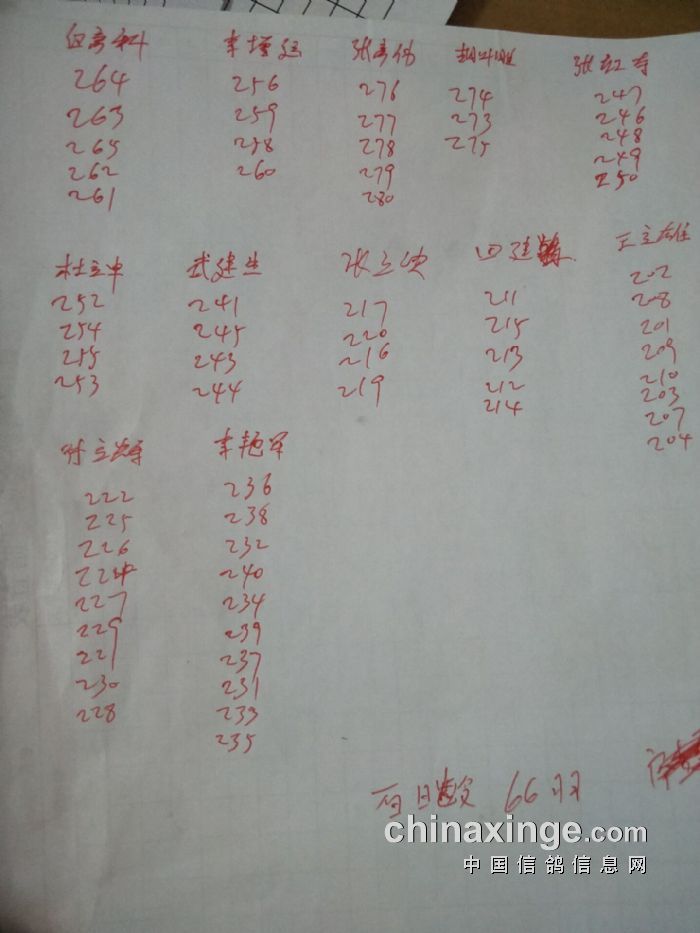 张彦伟
张红寿
264 256 276 274 247
263 259 277 273 246
265 258 278 275 248
262 260 279 249
261 280 250
杜立中 武建生 张立俊 田建
252 241 217 211 202
254 245 220 215 208
255 243 216 213 201
253 244 219 212 209
214 210
203
207
204
李艳军
222 236
225 238
226 232
224 240
227 234
229 239
221 237
230 231
228 233
235
百日数 66羽
chinaxinge.com
中国信鸽信息网